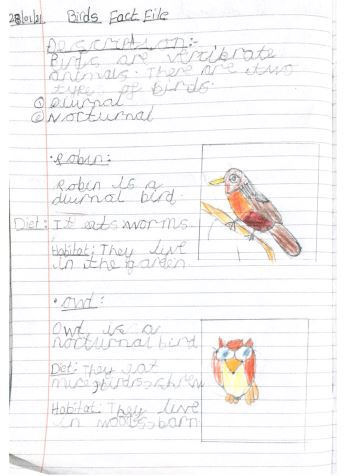 28/01/21 Birds Fact File
Description:-
Birds are vertibrate
animals. There are two
types of birds.
① Diurnal
② Nocturnal
• Robin:
Robin is a
diurnal bird.
Diet: It eats worms
Habitat: They live
in the garden
• Owl:
Owl is a
nocturnal bird
Diet: They eat
mice, birds, shrew
Habitat: They live
in woods, barn